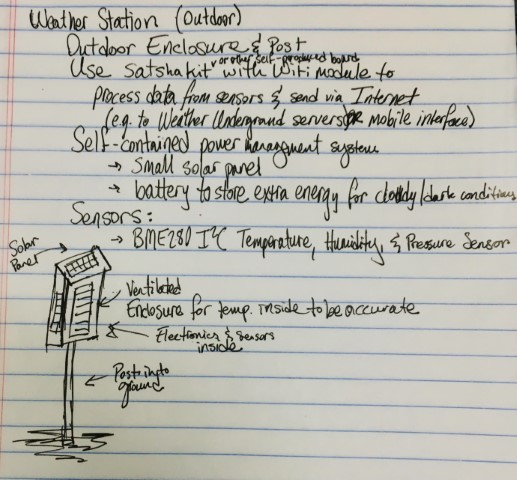 Weather Station (Outdoor)
Outdoor Enclosure & Post
Use Satshakit ˅or other self-produced board with Wifi module to
process data from sensors & send via Internet
(e.g. to Weather Underground servers OR mobile interface)
Self-contained power management system
→ small solar panel
→ battery to store extra energy for cloudy/dark conditions
Sensors:
→ BME280 I²C Temperature, Humidity, & Pressure Sensor
Solar
Panel
Ventilated
Enclosure for temp. inside to be accurate
Electronics & sensors
inside
Post into
ground